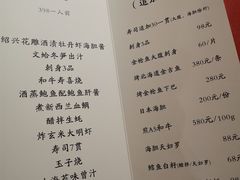 398一人前
绍兴花雕酒渍牡丹虾海胆酱
文蛤冬笋出汁
刺身3品
和牛寿喜烧
酒蒸鲍鱼配鲍鱼肝酱
煮新西兰血蛸
醋拌生蚝
炸玄米大明虾
寿司7贯
玉子烧
味曾汁
寿司追加30一贯
98元
刺身3品
60/片
金枪鱼大腹刺身
380元
烤北海道金吉鱼
280元
烤金枪鱼下巴
200元/份
日本海胆
580元/100g
煎A5和牛
88元
海胆天妇罗
鳕鱼白籽